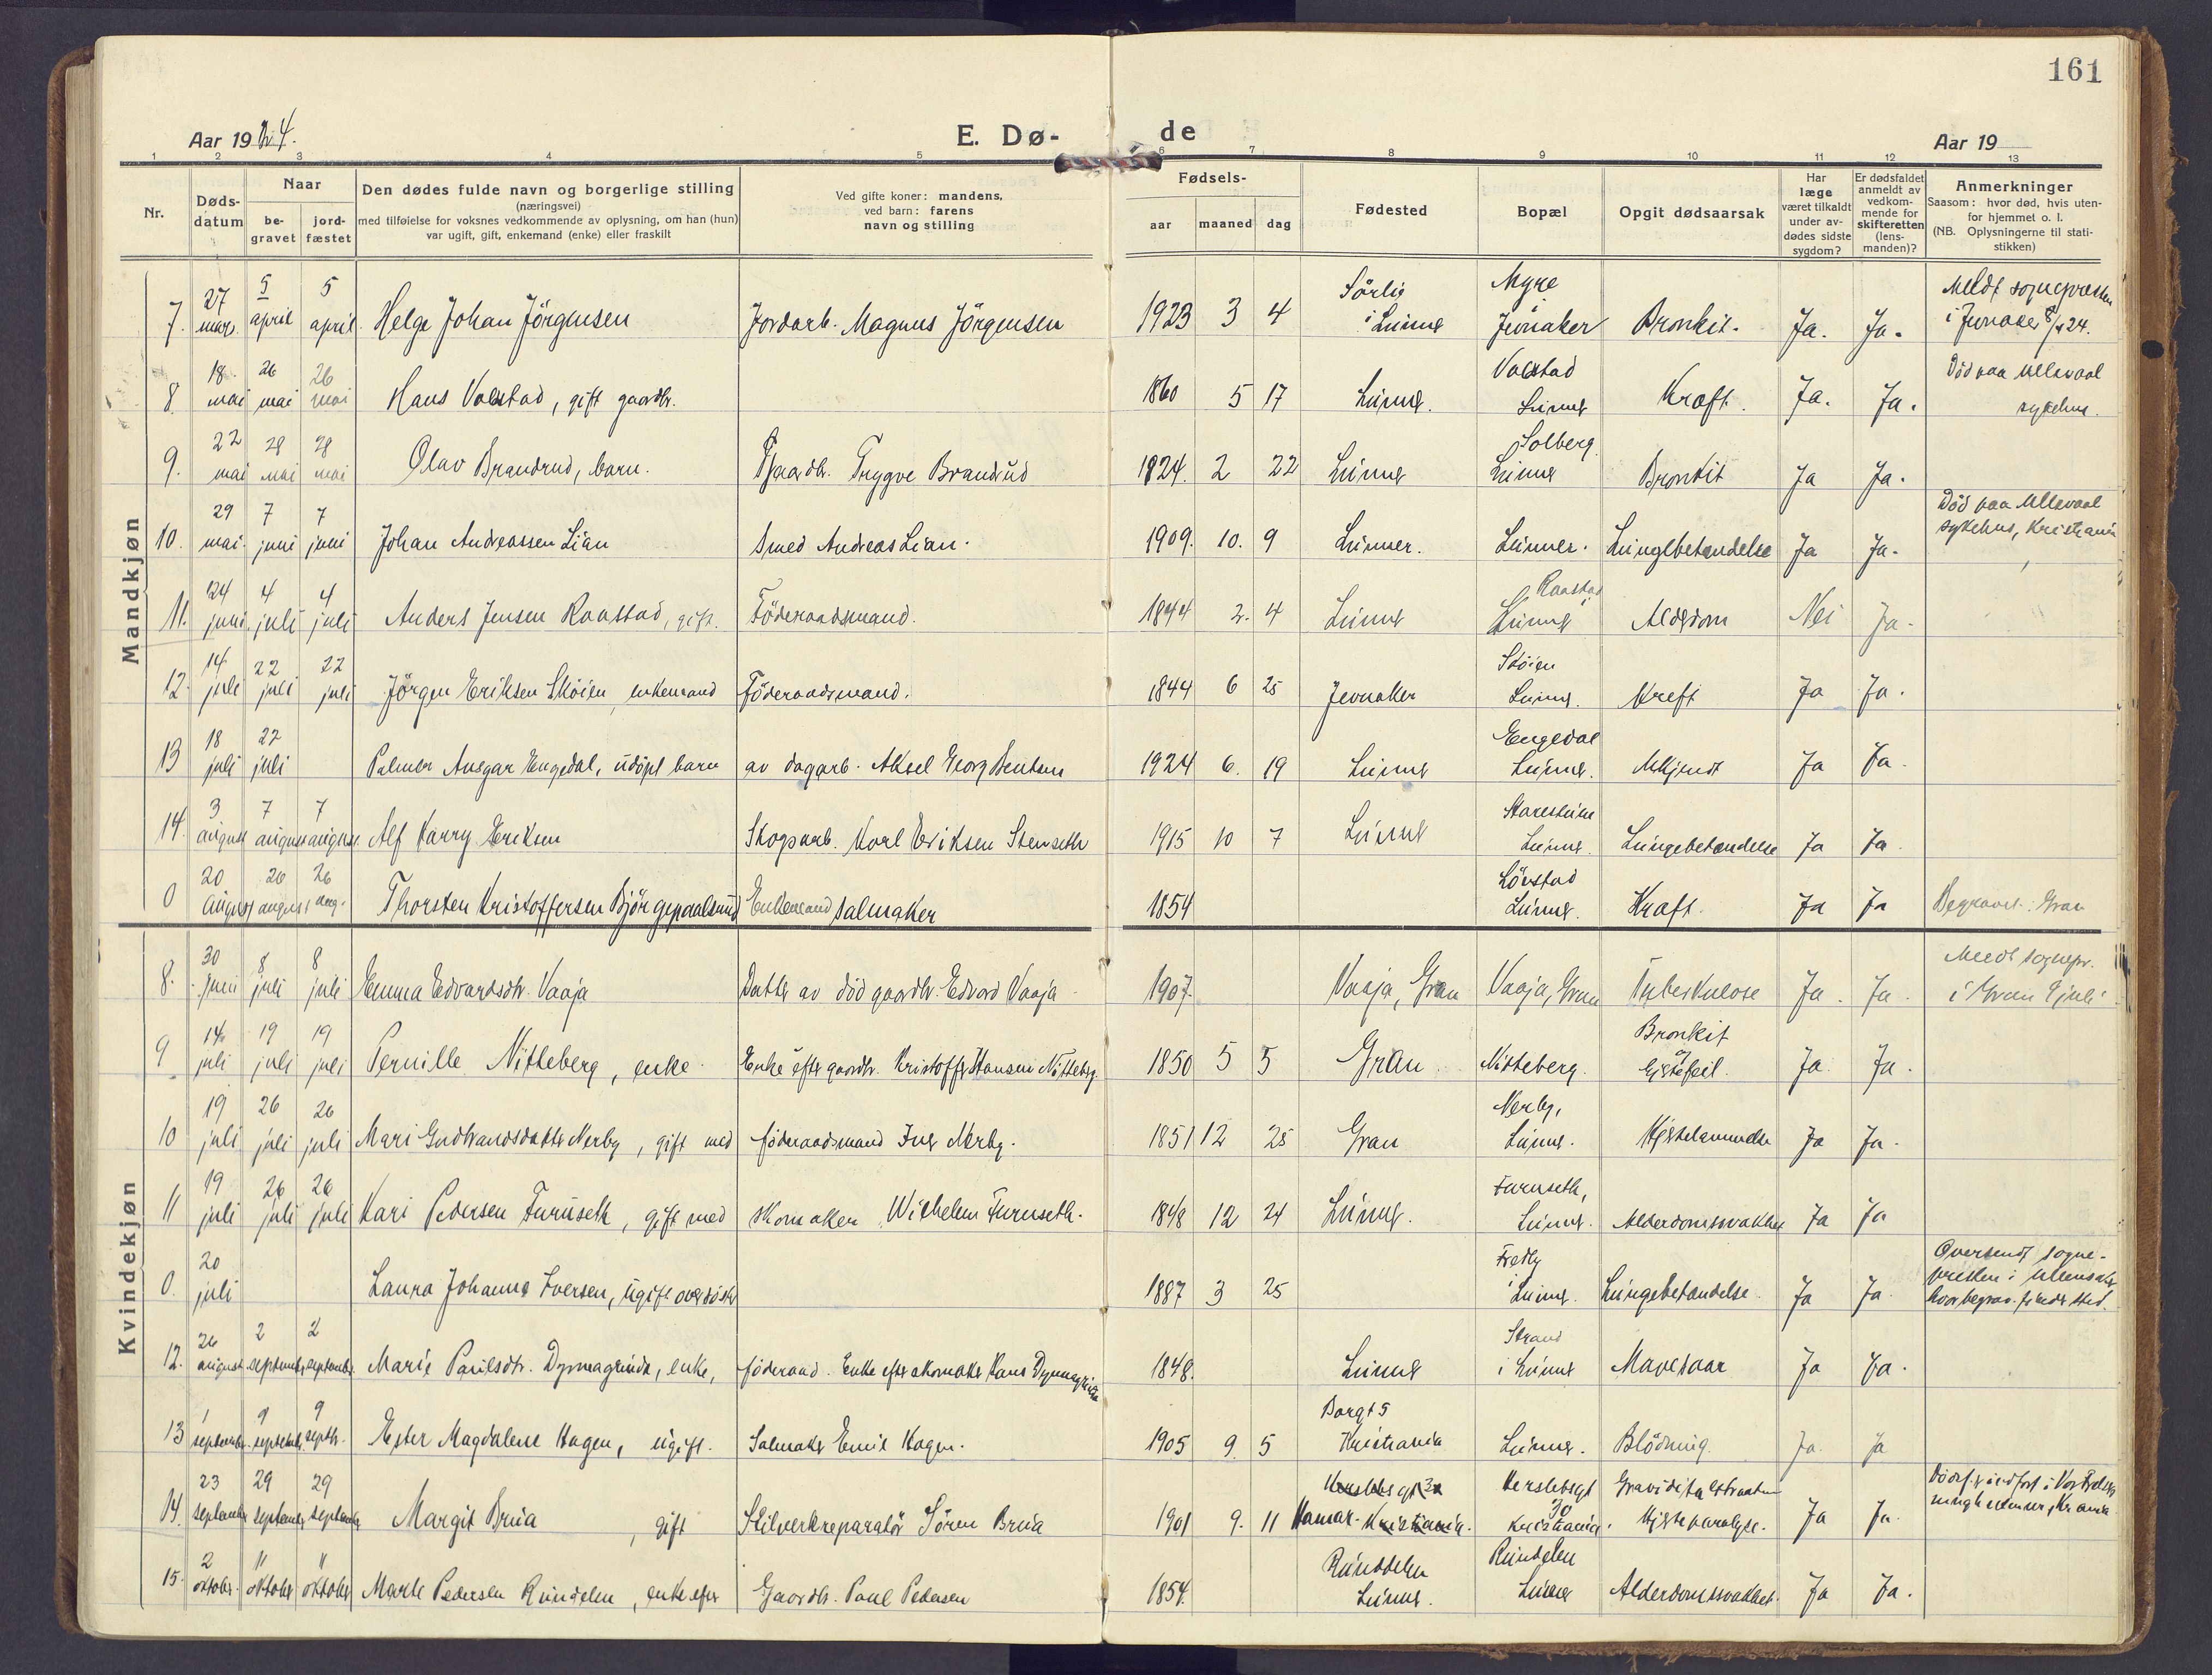 161
Aar 1924.
E. Dø-de
Aar 19
1 2 3 4 5 6 7 8 9 10 11 12 13
Nr.
Døds-datum
Naar
be-gravet
jord-fæstet
Den dødes fulde navn og borgerlige stilling
(næringsvei)
med tilføielse for voksnes vedkommende av oplysning, om han (hun)
var ugift, gift, enkemand (enke) eller fraskilt
Ved gifte koner: mandens,
ved barn: farens
navn og stilling
Fødsels-
aar maaned dag
Fødested
Bopæl
Opgit dødsaarsak
Har læge været tilkaldt under av-dødes sidste sygdom?
Er dødsfaldet anmeldt av vedkom-mende for skifteretten (lens-manden)?
Anmerkninger
Saasom: hvor død, hvis uten-
for hjemmet o. l.
(NB. Oplysningerne til stati-
stikken)
Mandkjøn
7. 27 mars 5 april 5 april. Helge Johan Jörgensen Jordarb. Magnus Jörgensen 1923 3 4 Sörlie i Lunner Myre i Jevnaker Bronkit. Ja. Ja. Meldt sognepresten i Jevnaker 8/4 24.
8. 18. mai 26 mai 26 mai Hans Volstad, gift gaardbr. 1860 5 17 Lunner. Volstad Lunner Kræft. Ja. Ja. Död paa Ullevaal sykehus.
9. 22 mai 28 mai 28 mai Olav Brandrud, barn. Gaardbr. Trygve Brandrud 1924. 2 22 Lunner Solberg Lunner Bronkit Ja Ja.
10. 29 mai. 7 juni 7 juni Johan Andreassen Lian Smed Andreas Lian. 1909. 10. 9 Lunner. Lunner. Lungebetændelse Ja Ja. Död paa Ullevaal sykehus, Kristiania
11. 24 juni. 4 juli 4 juli Anders Jensen Raastad, gift. Föderaadsmand. 1844 2. 4 Lunner Raastad i Lunner Alderdom Nei Ja.
12. 14 juli 22 juli 22 juli Jörgen Eriksen Sköien, enkemand Föderaadsmand. 1844 6 25 Jevnaker Sköien Lunner. Kreft Ja Ja.
13 18 juli 22 juli Palmer Ansgar Engedal, udöpt barn av dagarb. Aksel Georg Bentsen 1924 6. 19 Lunner Engedal Lunner. Ukjendt Ja Ja.
14. 3 august 7 august 7 august. Alf Harry Eriksen Skogsarb. Karl Eriksen Stenseth 1915 10 7 Lunner Lunner. Lungebetændelse Ja Ja
0 20 august 26 august 26 aug. Thorsten Kristoffersen Björgepaalsrud Enkemand salmaker 1854 Lövstad Lunner. Kræft. Ja Ja Begravet: Gran
Kvindekjøn
8. 30 juni 8 juli 8 juli Emma Edvardsdtr. Vaaja Datter av död gaardbr. Edvard Vaaja 1907. Vaaja, Gran Vaaja, Gran Tuberkulose Ja. Ja. Meldt sognepr. i Gran 9 juli
9 14 juli 19 juli 19 juli Pernille Nitteberg, enke. Enke efter gaardbr. Kristoffer Hansen Nitteberg. 1850 5 5 Gran. Nitteberg. Bronkit og Hjertefeil. Ja Ja.
10 19 juli 26 juli 26 juli Mari Gudbrandsdatter Nerby, gift med föderaadsmand Iver Nerby. 1851 12 25 Gran Nerby, Lunner. Hjertelammelse Ja Ja.
11 19 juli 26 juli 26 juli Kari Pedersen Furuseth, gift med skomaker Wilhelm Furuseth. 1848 12 24 Lunner. Furuseth, Lunner. Alderdomssvakhet Ja Ja
0. 20 juli Laura Johanne Iversen, ugift oversöster 1887 3 25 Fredly i Lunner. Lungebetændelse. Ja Ja. Oversendt sogne-presten i Ullensaker hvor begrav. finder sted.
12. 26 august 2 september 2 september Marie Paulsdtr. Dynnagrinde, enke, föderaad. Enke efter skomaker Hans Dynnagrinde 1848. Lunner Strand i Lunner Mavesaar Ja Ja.
13 1 september 9 september 9 septbr. Ester Magdalene Hagen, ugift. Salmaker Emil Hagen. 1905 9. 5 Borggt 5 Kristiania Lunner. Blödning. Ja. Ja
14. 23 september 29 september 29 september Margit Brua, gift Sören Brua 1901 9. 11 Hamar. Kristiania. Herslebsgt 30 Kristiania. Hjerteparalyse. Ja Ja.
15. 2 oktober. 11 oktober 11 oktober Marte Pedersen Rundelen, enke efter Gaardbr. Paul Pedersen 1854. Rundelen Lunner. Rundelen Lunner Alderdomssvakhet. Ja Ja.